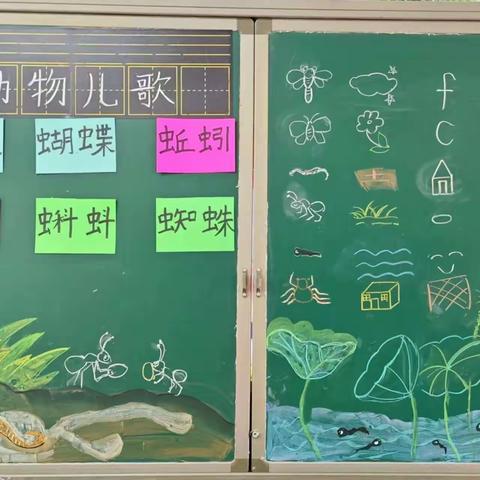 动物儿歌
蝴蝶 蚯蚓
蝌蚪 蜘蛛
f
C